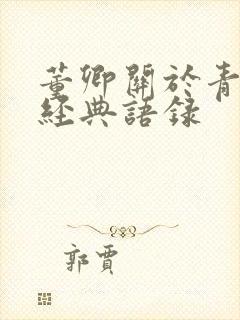 董卿關於青
經典語録
郭賈